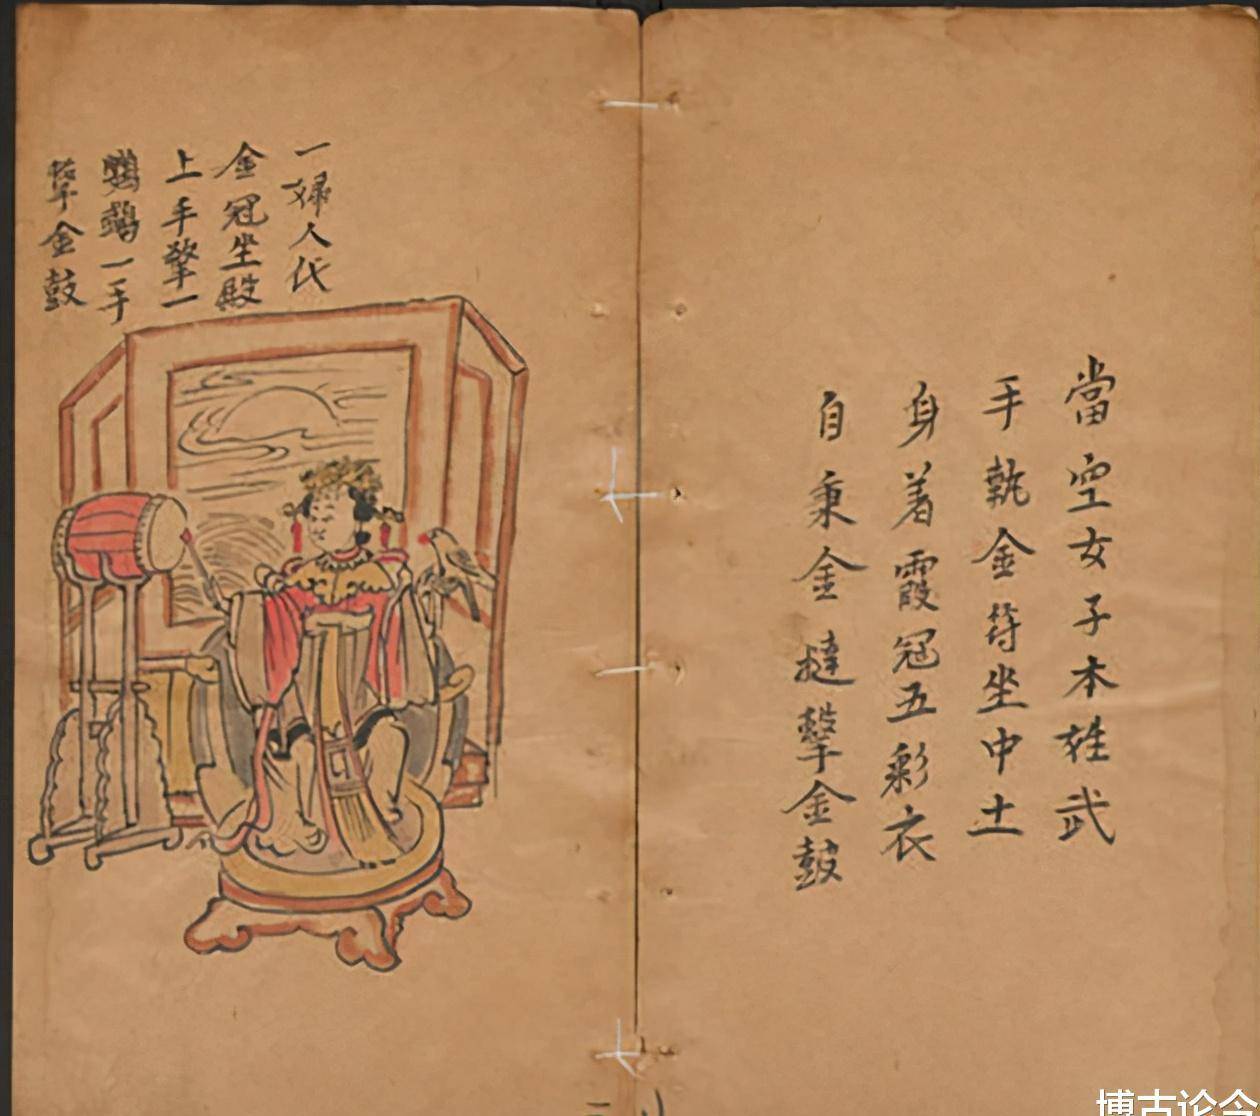 當空女子本雄武
手執金符坐中土
身着霞冠五彩衣
自秉金撻擊金鼓
一婦人代
金冠坐殿
上手擎一
鸚鵡一手
擊金鼓
博古论今